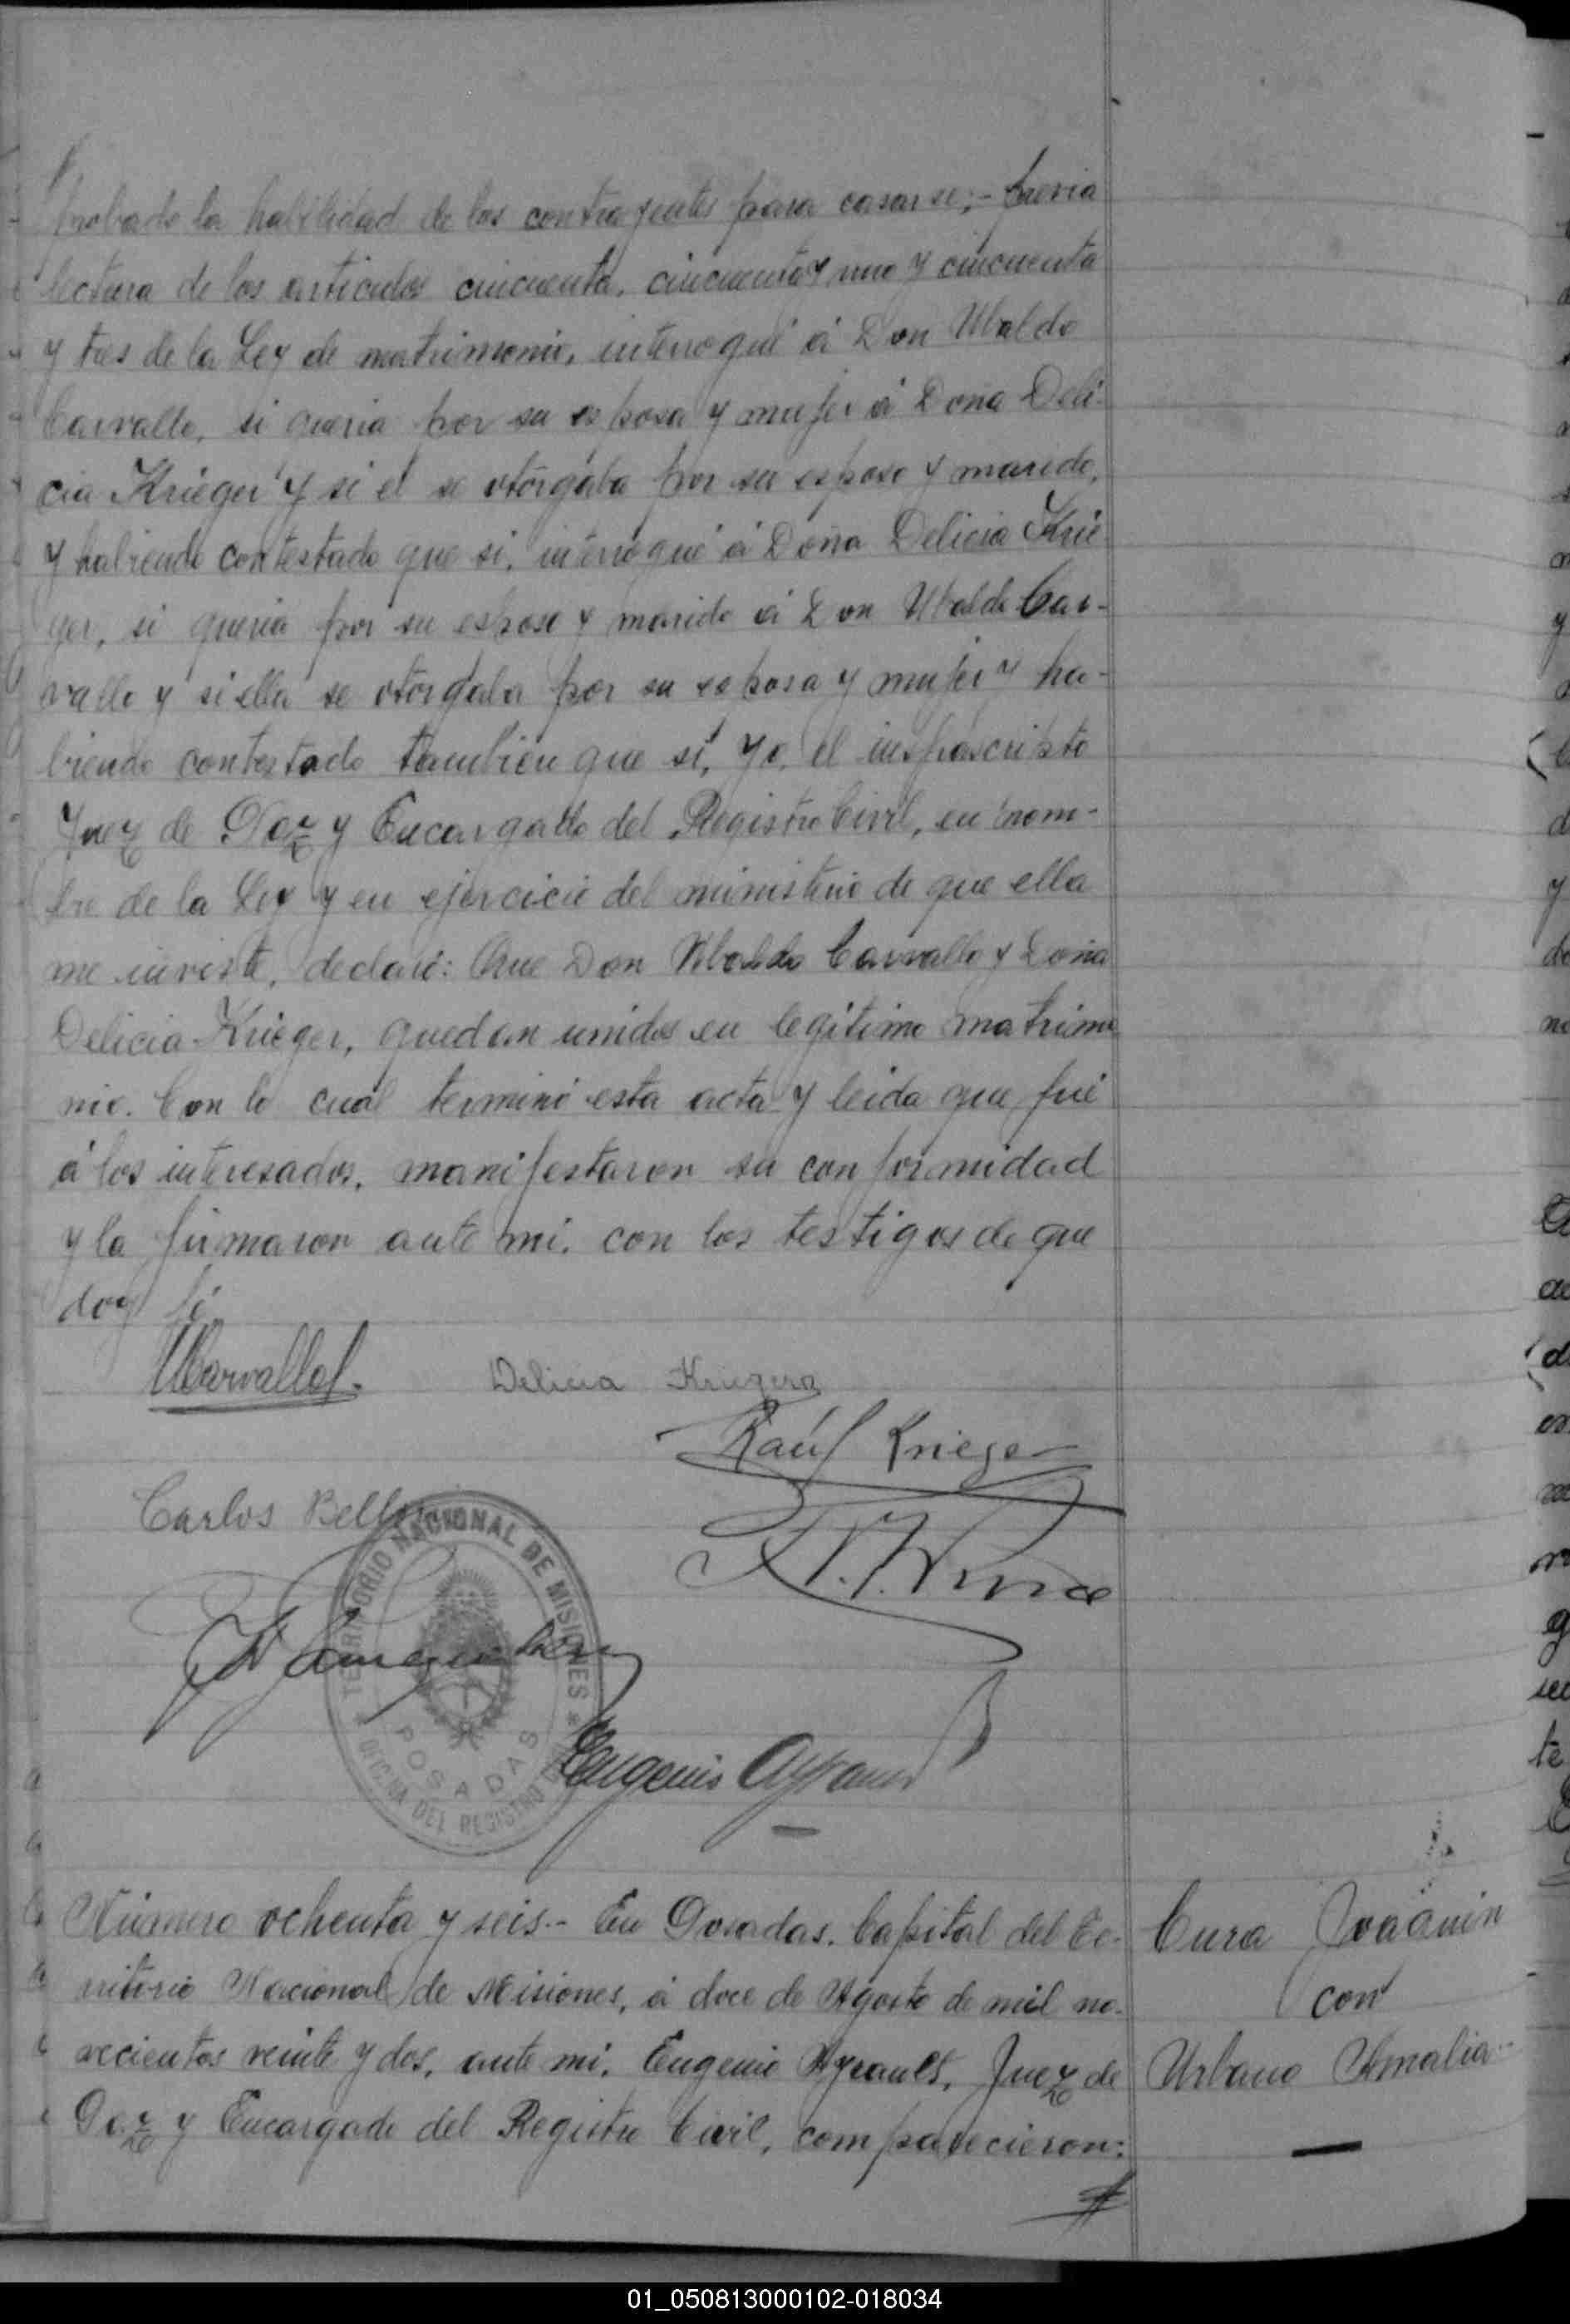 probado la habilidad de los contrayentes para casarse;- Previa
lectura de los articulos cincuenta, cincuenta y uno y cincuenta
y tres de la Ley de matrimonio, interrogué á Don Ubaldo
Carvallo, si queria por su esposa y mujer á Doña Deli-
cia Krieger y si el se otorgaba por su esposo y marido,
y habiendo contestado que si, interrogué á Doña Delicia Krie-
ger, si queria por su esposo y marido á Don Ubaldo Car-
vallo y si ella se otorgaba por su esposa y mujer y ha-
biendo contestado tambien que si, Yo, el infrascripto
Juez de Paz y Encargado del Registro Civil, en nom-
bre de la Ley y en ejercicio del ministerio de que ella
me inviste, declaré: Que Don Ubaldo Carvallo y Doña
Delicia Krieger, quedan unidos en legitimo matrimo
nio. Con lo cual terminó esta acta y leida que fué
á los interesados, manifestaron su conformidad
y la firmaron ante mi, con los testigos de que
doy fé.
UCarvallo
Delicia Kriegera
Raúl Krieger
Carlos Bello
TERRITORIO NACIONAL DE MISIONES
POSADAS
OFICINA DEL REGISTRO
Eugenio Ayrault
Número ochenta y seis.- En Posadas, Capital del Te-
rritorio Nacional de Misiones, á doce de Agosto de mil no-
vecientos veinte y dos, ante mi, Eugenio Ayrault, Juez de
Paz y Encargado del Registro Civil, comparecieron:
Cura Joaquin
con
Urbano Amalia
01_050813000102-018034